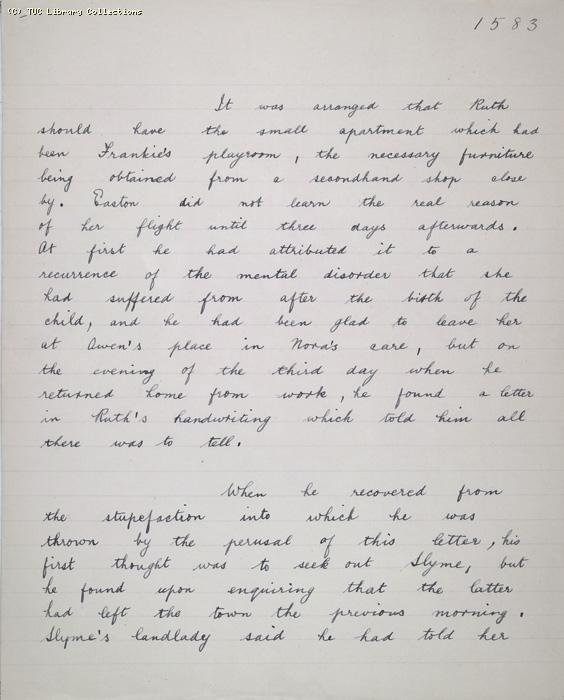 (C) TUC Library Collections
1583
It was arranged that Ruth
should have the small apartment which had
been Frankie's playroom, the necessary furniture
being obtained from a secondhand shop close
by. Easton did not learn the real reason
of her flight until three days afterwards.
At first he had attributed it to a
recurrence of the mental disorder that she
had suffered from after the birth of the
child, and he had been glad to leave her
at Owen's place in Nora's care, but on
the evening of the third day when he
returned home from work, he found a letter
in Ruth's handwriting which told him all
there was to tell.
When he recovered from
the stupefaction into which he was
thrown by the perusal of this letter, his
first thought was to seek out Slyme, but
he found upon enquiring that the latter
had left the town the previous morning.
Slyme's landlady said he had told her